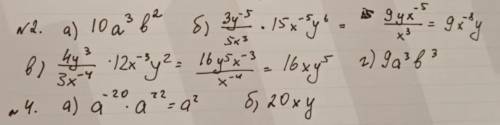 №2. а) 10a³b² б) 3y⁻⁵/5x³ · 15x⁻⁵y⁶ = 9yx⁻⁵/x³ = 9x⁻⁸y
в) 4y³/3x⁻⁴ · 12x⁻³y² = 16y⁵x⁻³/x⁻⁴ = 16xy⁵ г) 9a³b³
№4. а) a⁻²⁰ · a²² = a² б) 20xy